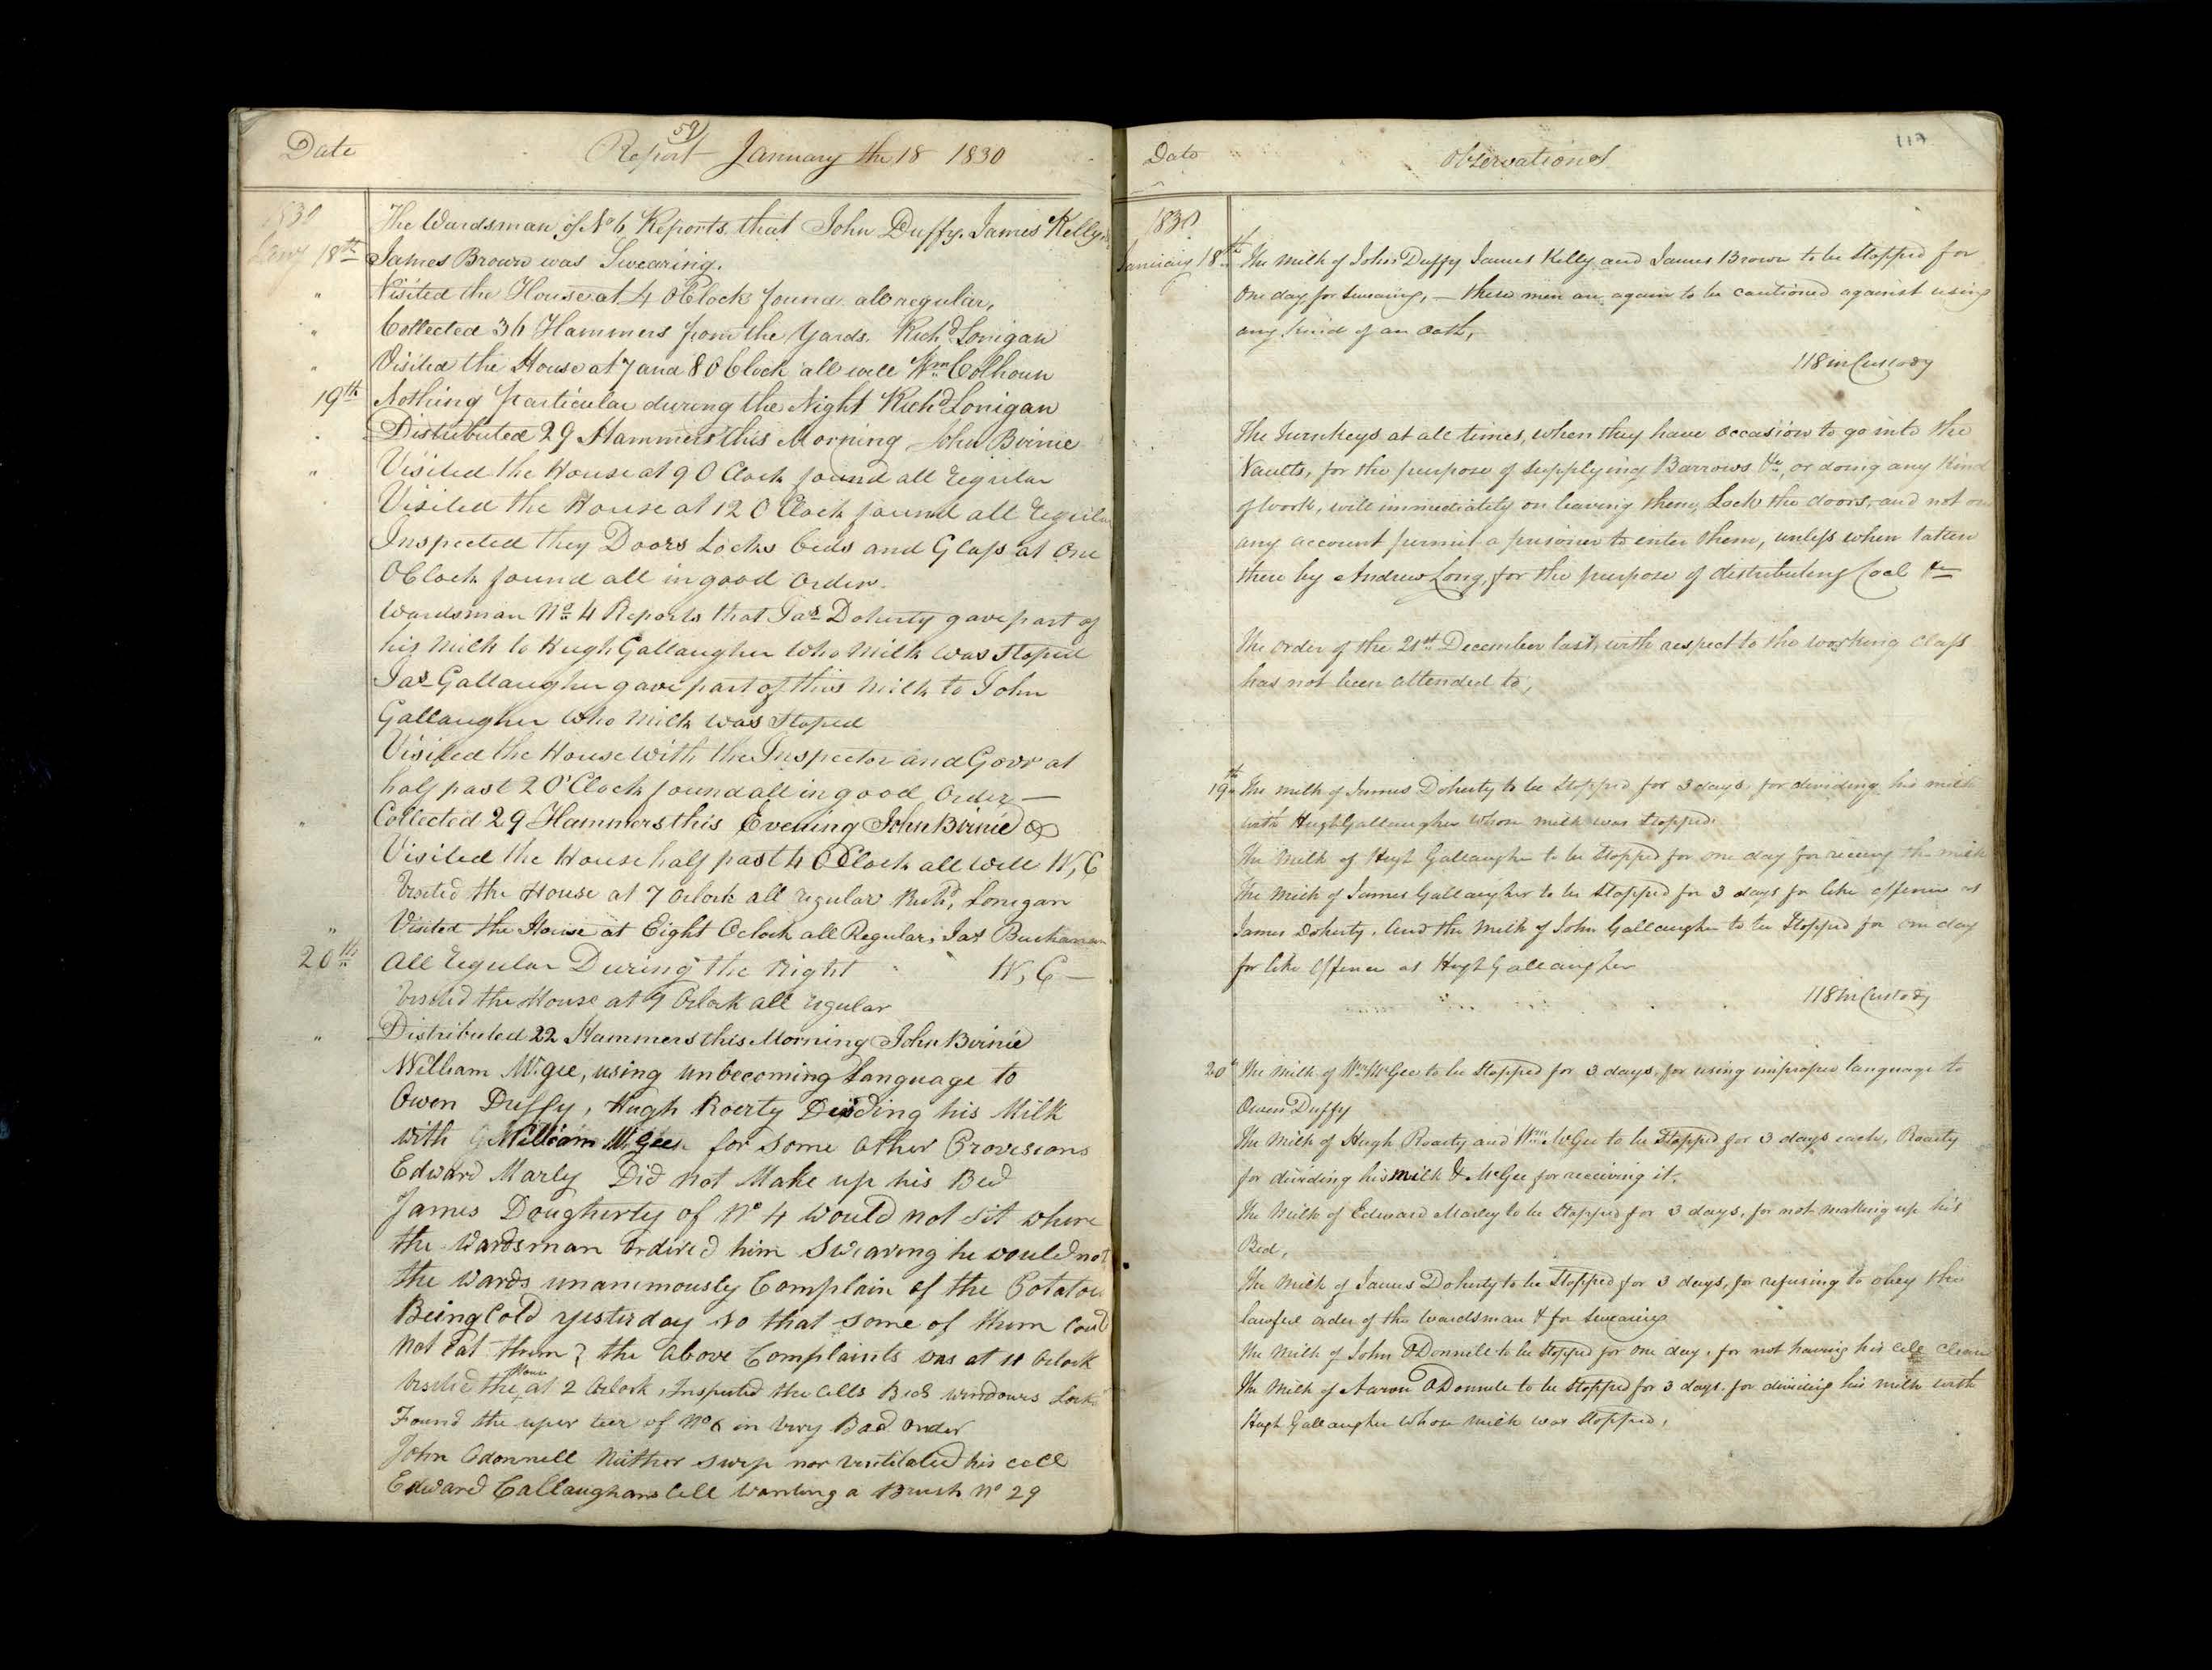 Date
59
Report January the 18 1830
1830
The Wardsman of No 6 Reports that John Duffy, James Kelly &
Jany 18th James Brown was Swearing.
" Visited the House at 4 OClock found all regular,
" Collected 36 Hammers from the Yards. Richd Lonigan
" Visited the House at 7 and 8 OClock all well Wm Colhoun
19th Nothing particular during the Night Richd Lonigan
Distributed 29 Hammers this Morning John Birnie
" Visited the House at 9 O Clock found all regular
Visited the House at 12 O Clock found all regular
Inspected they Doors Locks beds and Glass at One
OClock found all in good order.
Wardsman No 4 Reports that Jas Doherty gave part of
his Milk to Hugh Gallaugher Who Milk was stoped
Jas Gallaugher gave part of this Milk to John
Gallaugher Who Milk was stoped
Visited the House with the Inspector and Govr at
half past 2 O'Clock found all in good order —
" Collected 29 Hammers this Evening John Birnie
Visited the House half past 4 OClock all well W, C
Visited the House at 7 Oclock all regular Richd, Lonigan
" Visited the House at Eight Oclock all Regular, Jas Buchanan
20th All regular During the Night W, C —
Visited the House at 9 Oclock all regular
" Distributed 22 Hammers this Morning John Birnie
William McGee, using unbecoming Language to
Owen Duffy, Hugh Roerty Deiding his Milk
with William McGee for some other Provisions
Edward Marly Did not Make up his Bed
James Dougherty of No 4 would not sit where
the Wardsman ordired him Swearing he would not
the Wards unanimously Complain of the Potatoes
Being Cold yesterday so that some of them Could
not Eat them & the above Complaints was at 11 Oclock
Visited the House at 2 Oclock, Inspected the Cells Beds windows Locks
Found the uper teer of No 6 in very Bad order
John Odonnell Nuther swep nor ventilated his cell
Edward Callaughans Cell Wanting a Brush No 29
Date
Observations
117
1830
January 18th The Milk of John Duffy James Kelly and James Brown to be Stopped for
One day for Swearing, — these men are again to be cautioned against using
any kind of an Oath,
118 in Custody
The Turnkeys at all times, when they have occasion to go into the
Vaults, for the purpose of supplying Barrows &c, or doing any kind
of work, will immediately on leaving them, Lock the doors, and not on
any account permit a prisoner to enter them, unless when taken
there by Andrew Long, for the purpose of distributing Coal &c
The order of the 21st December last, with respect to the working class
has not been attended to,
19th The milk of James Doherty to be Stopped for 3 days, for dividing his milk
with Hugh Gallaugher whose milk was Stopped.
The Milk of Hugh Gallaugher to be Stopped for one day for receing the milk
The Milk of James Gallaugher to be Stopped for 3 days for like offence as
James Doherty, and the Milk of John Gallaugher to be Stopped for one day
for like Offence as Hugh Gallaugher
118 In Custody
20th The milk of Wm McGee to be Stopped for 3 days, for using improper language to
Owen Duffy
The Milk of Hugh Roarty and Wm McGee to be Stopped for 3 days each, Roarty
for dividing his milk & McGee for receiving it.
The Milk of Edward Marley to be Stopped for 3 days, for not making up his
Bed,
The Milk of James Doherty to be Stopped for 3 days, for refusing to obey the
lawful order of the wardsman & for Swearing
The Milk of John ODonnell to be Stopped for one day, for not having his cell clean
The Milk of Aaron ODonnell to be Stopped for 3 days, for dividing his milk with
Hugh Gallaugher whose milk was Stopped,